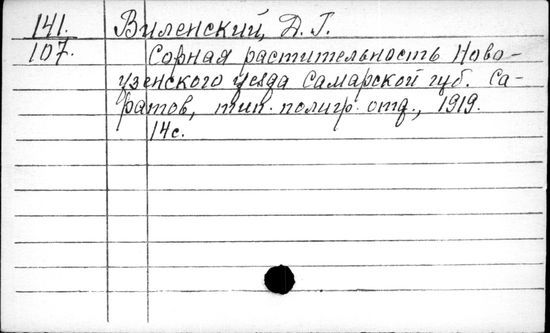 141. Виленский, Д. Г.
107. Сорная растительность Ново-
узенского уезда Самарской губ. Са-
ратов, тип. полигр. отд., 1919.
14с.